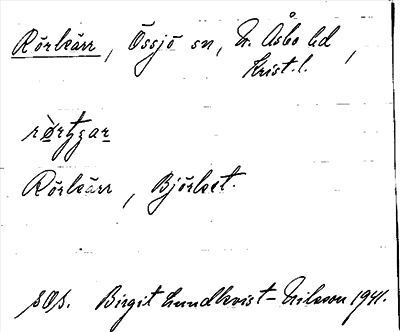 Rörkärr, Össjö sn, N. Åsbo hd,
Krist. l.
rø̀rtʒar
Rörkärr, Björket.
sOs. Birgit Lundkvist-Nilsson 1941.